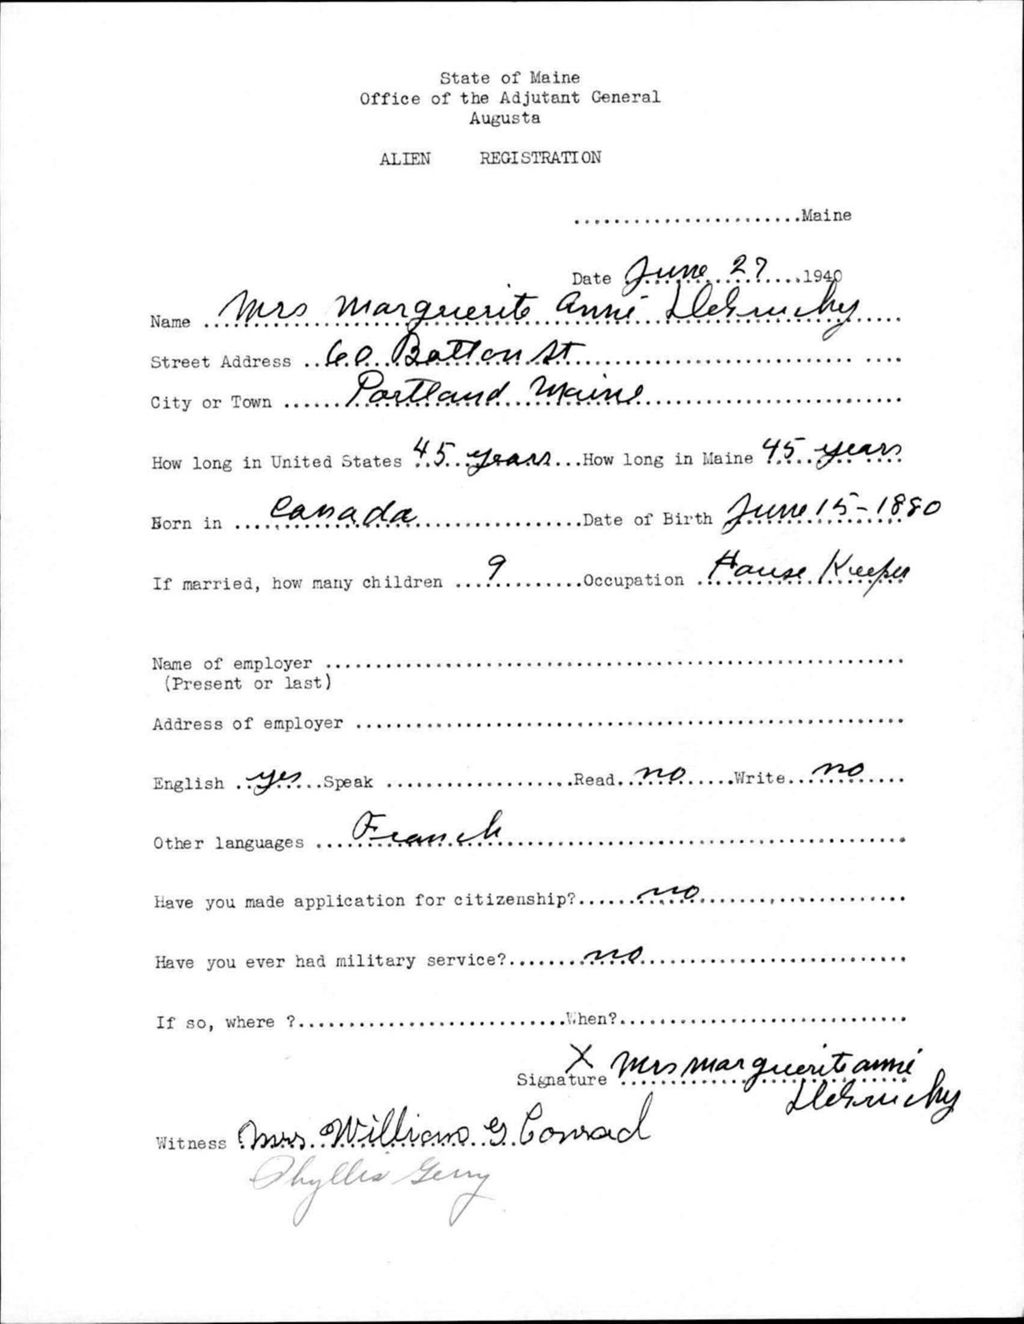 State of Maine
Office of the Adjutant General
Augusta
ALIEN REGISTRATION
.......................Maine
Date June 27 1940
Name Mrs Marguerite Annie DeGruchy
Street Address 60 Boston St
City or Town Portland Maine
How long in United States 45 years How long in Maine 45 years
Born in Canada Date of Birth June 15-1880
If married, how many children 9 Occupation House Keeper
Name of employer
(Present or last)
Address of employer
English yes Speak Read no Write no
Other languages French
Have you made application for citizenship? no
Have you ever had military service? no
If so, where ? When?
X Mrs Marguerite Annie
Signature
DeGruchy
Witness Mrs. William G. Conrad
Phyllis Gerry